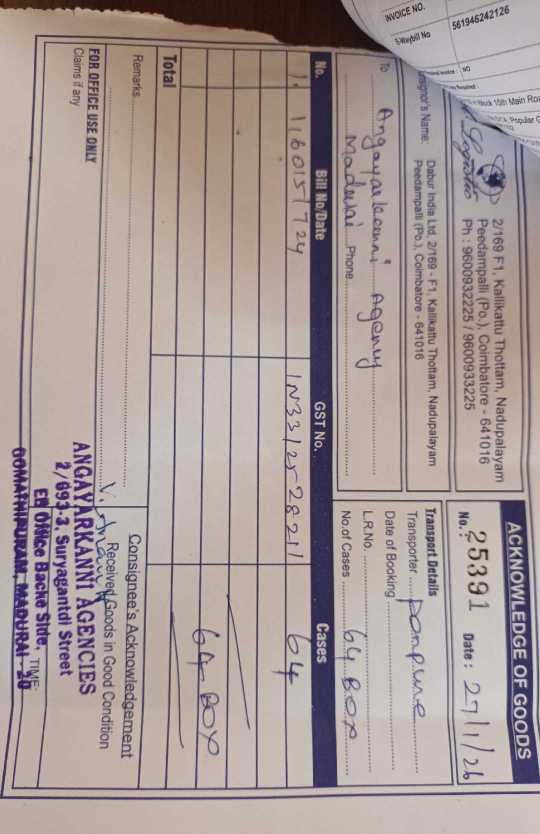 INVOICE NO.
561946242126
E-Waybill No
NO
15th Main Roa
Popular C
Logistic
2/169 F1, Kallikattu Thottam, Nadupalayam
Peedampalli (Po.), Coimbatore - 641016
Ph : 9600932225 / 9600933225
ACKNOWLEDGE OF GOODS
No.: 25391 Date : 27/1/26
signor's Name: Dabur India Ltd, 2/169 - F1, Kallikattu Thottam, Nadupalayam
Peedampalli (Po.), Coimbatore - 641016
Transport Details
Transporter
Date of Booking
L.R.No.
No.of Cases 64 Box
To Angayarkanni Agency
Madurai Phone
No. Bill No/Date GST No. Cases
1. 1160151724 1N3312528211 64
64 Box
Total
Remarks
Consignee's Acknowledgement
Received Goods in Good Condition
FOR OFFICE USE ONLY
Claims if any
ANGAYARKANNI AGENCIES
2/693-3, Suryagantdi Street
EB Office Backe Side,
TIME:
GOMATHIPURAM, MADURAI - 20